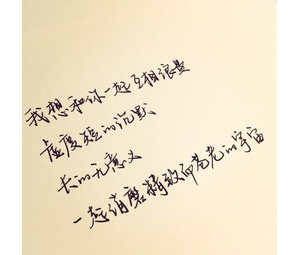 我想和你一起互相浪费
虚度短的沉默
长的无意义
一起消磨精致而苍老的宇宙